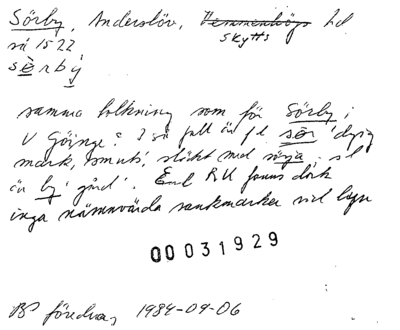 Sörby, Anderslöv, Vemmenhögs hd
Skytts
sn 1522
sèrbý
samma tolkning som för Sörby i
V Göinge? I så fall är fl sör 'dyig
mark, smuts', släkt med sörja, sl
är by 'gård'. Enl RU fanns dock
inga nämnvärda sankmarker vid byn
00031929
föredrag 1984-09-06